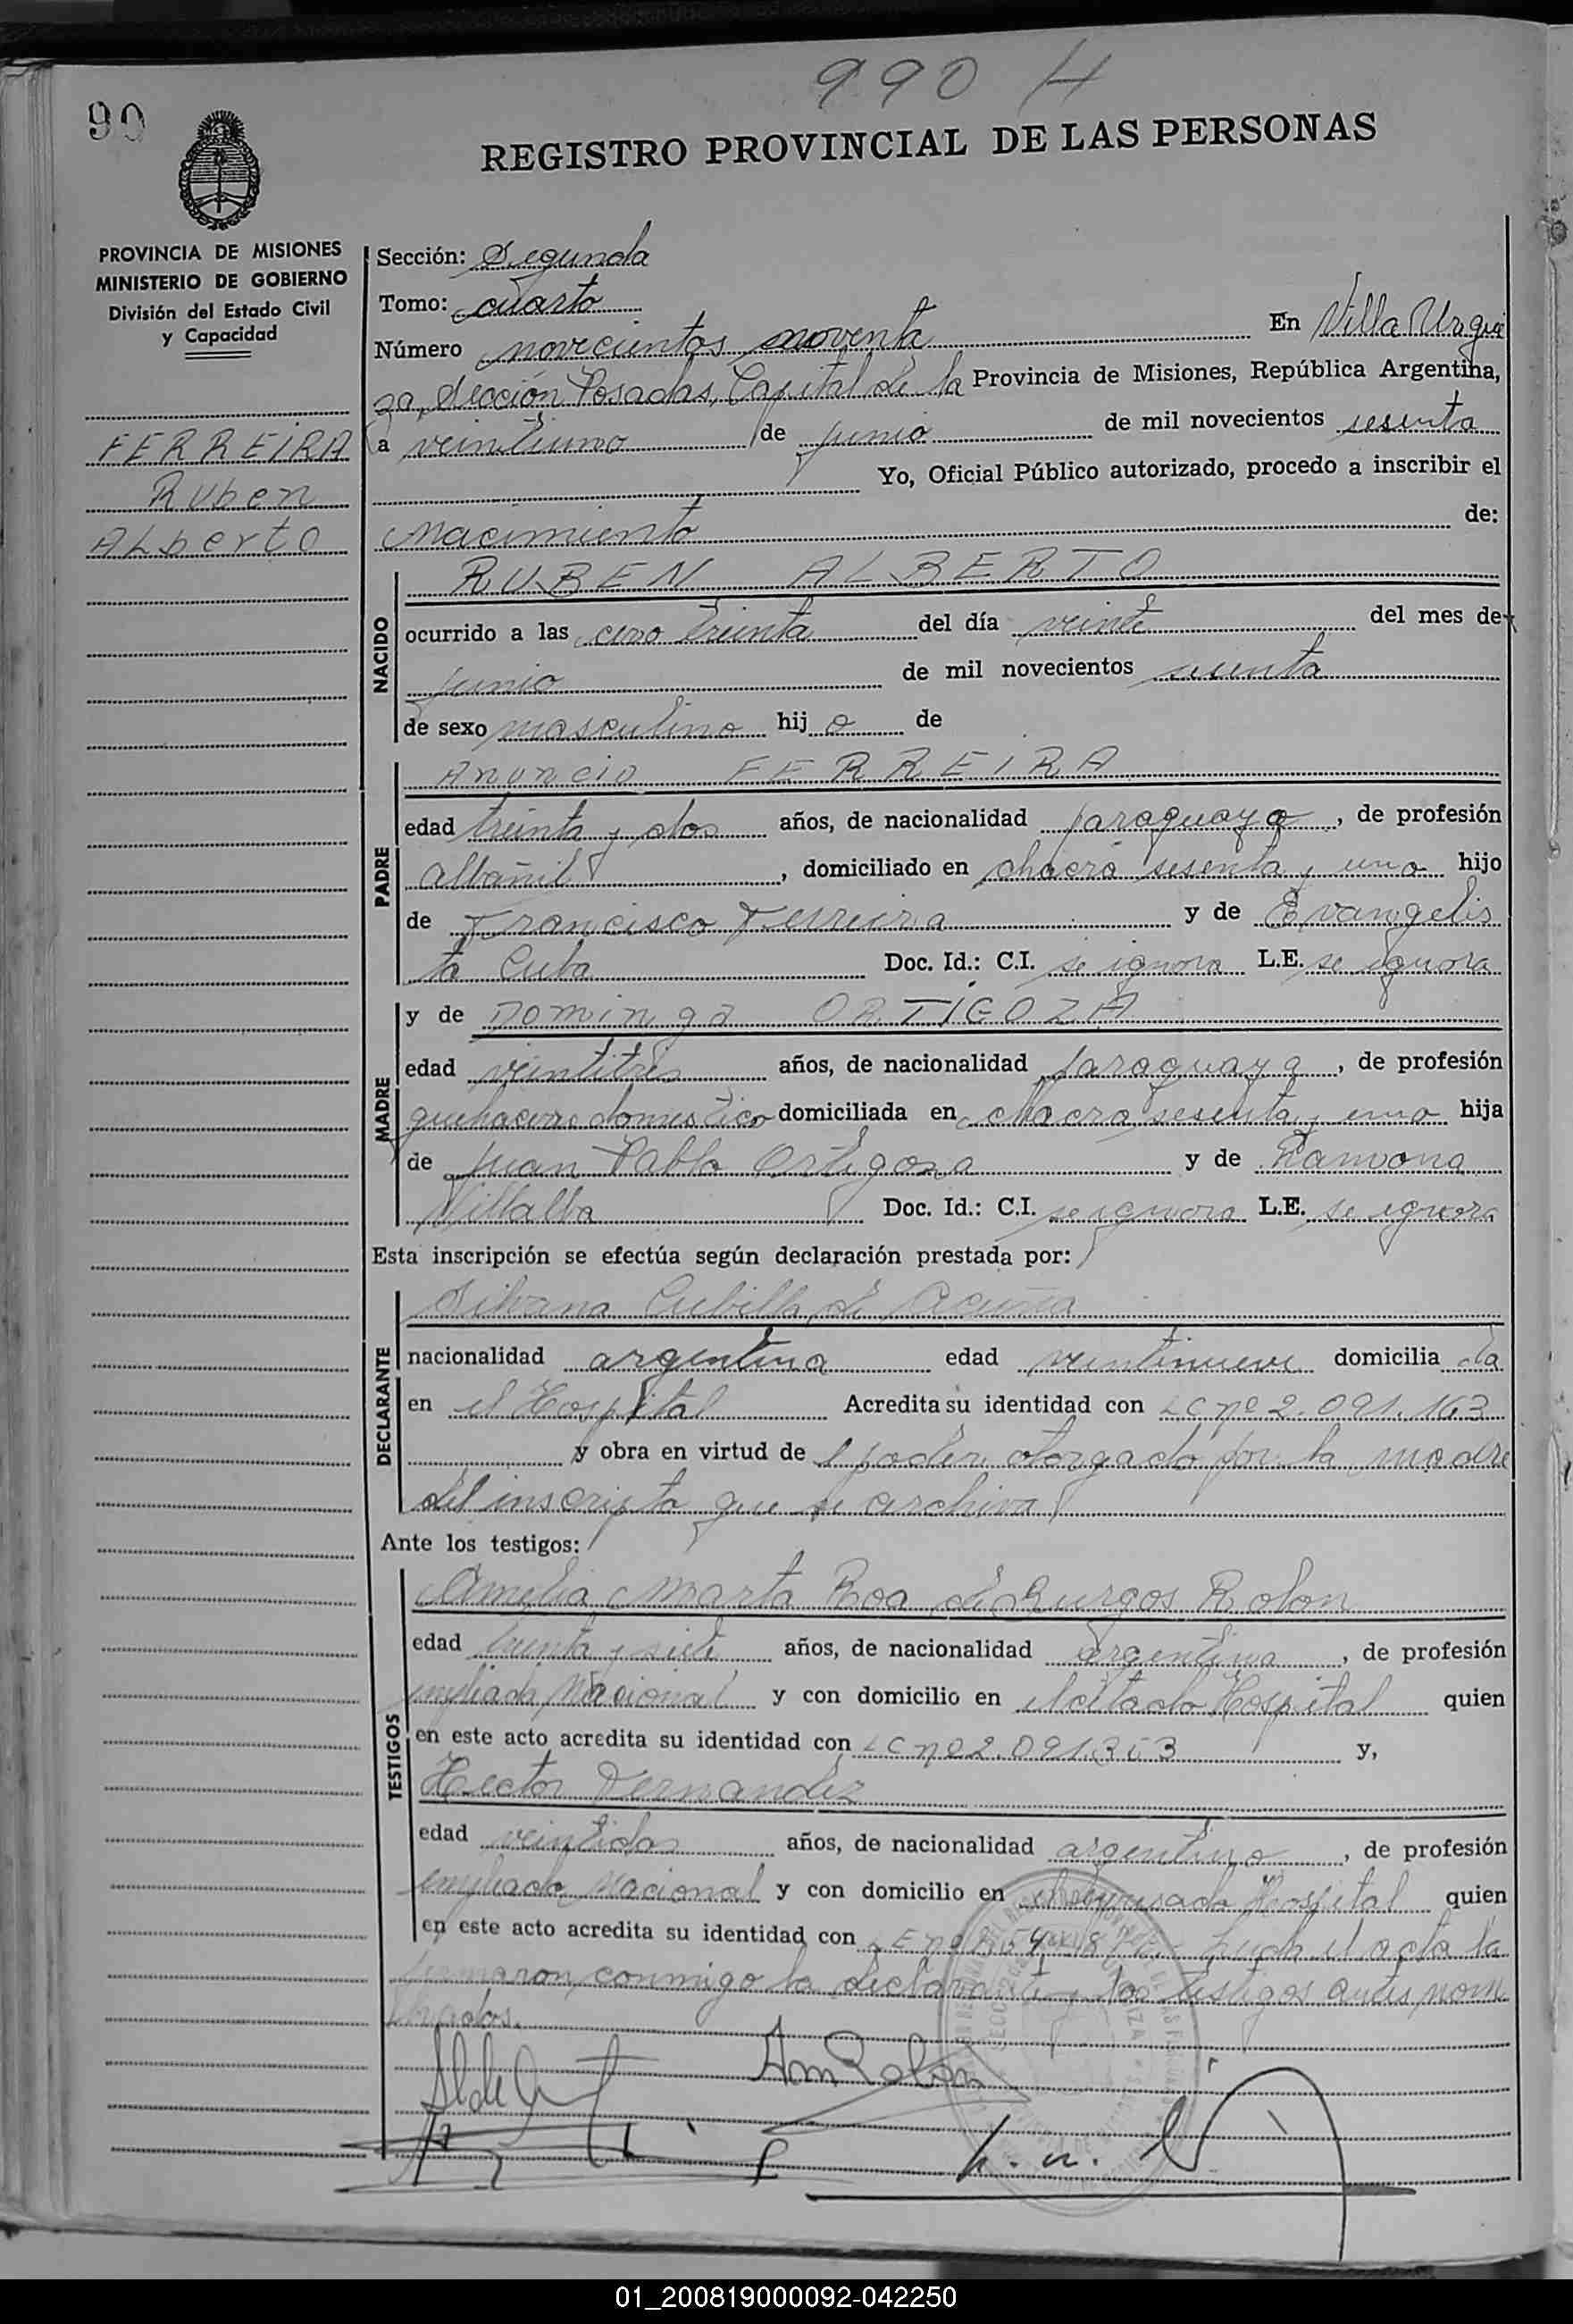 990 H
90
REGISTRO PROVINCIAL DE LAS PERSONAS
PROVINCIA DE MISIONES
MINISTERIO DE GOBIERNO
División del Estado Civil
y Capacidad
FERREIRA
Ruben
ALberto
Sección: Segunda
Tomo: cuarto
Número novecientos noventa En Villa Urqui
za, Sección Posadas, Capital de la Provincia de Misiones, República Argentina,
a veintiuno de junio de mil novecientos sesenta
Yo, Oficial Público autorizado, procedo a inscribir el
nacimiento de:
NACIDO
RUBEN ALBERTO
ocurrido a las cero treinta del día veinte del mes de
junio de mil novecientos sesenta
de sexo masculino hij o de
PADRE
Anuncio FERREIRA
edad treinta y dos años, de nacionalidad paraguaya, de profesión
albañil, domiciliado en chacra sesenta y uno hijo
de Francisco Ferreira y de Evangelis
ta Cuba Doc. Id.: C.I. se ignora L.E. se ignora
MADRE
y de Dominga ORTIGOZA
edad veintitres años, de nacionalidad paraguaya, de profesión
quehaceres domestico domiciliada en chacra sesenta y uno hija
de Juan Pablo Ortigoza y de Ramona
Villalba Doc. Id.: C.I. se ignora L.E. se ignora
Esta inscripción se efectúa según declaración prestada por:
DECLARANTE
Silvana Cubilla de Acuña
nacionalidad argentina edad veintinueve domicilia da
en el Hospital Acredita su identidad con LC nº 2.091.163
y obra en virtud de l poder otorgado por la madre
del inscripto que se archiva
Ante los testigos:
TESTIGOS
Amelia Marta Roa de Burgos Rolon
edad treinta y siete años, de nacionalidad argentina, de profesión
empleada Nacional y con domicilio en el citado Hospital quien
en este acto acredita su identidad con LC nº 2.091.353 y,
Hector Fernandez
edad veintidos años, de nacionalidad argentino, de profesión
empleado Nacional y con domicilio en el expresado Hospital quien
en este acto acredita su identidad con LE nº Leida el acta la
firmaron conmigo la declarante y los testigos antes nom
brados.
AmRolon
01_200819000092-042250